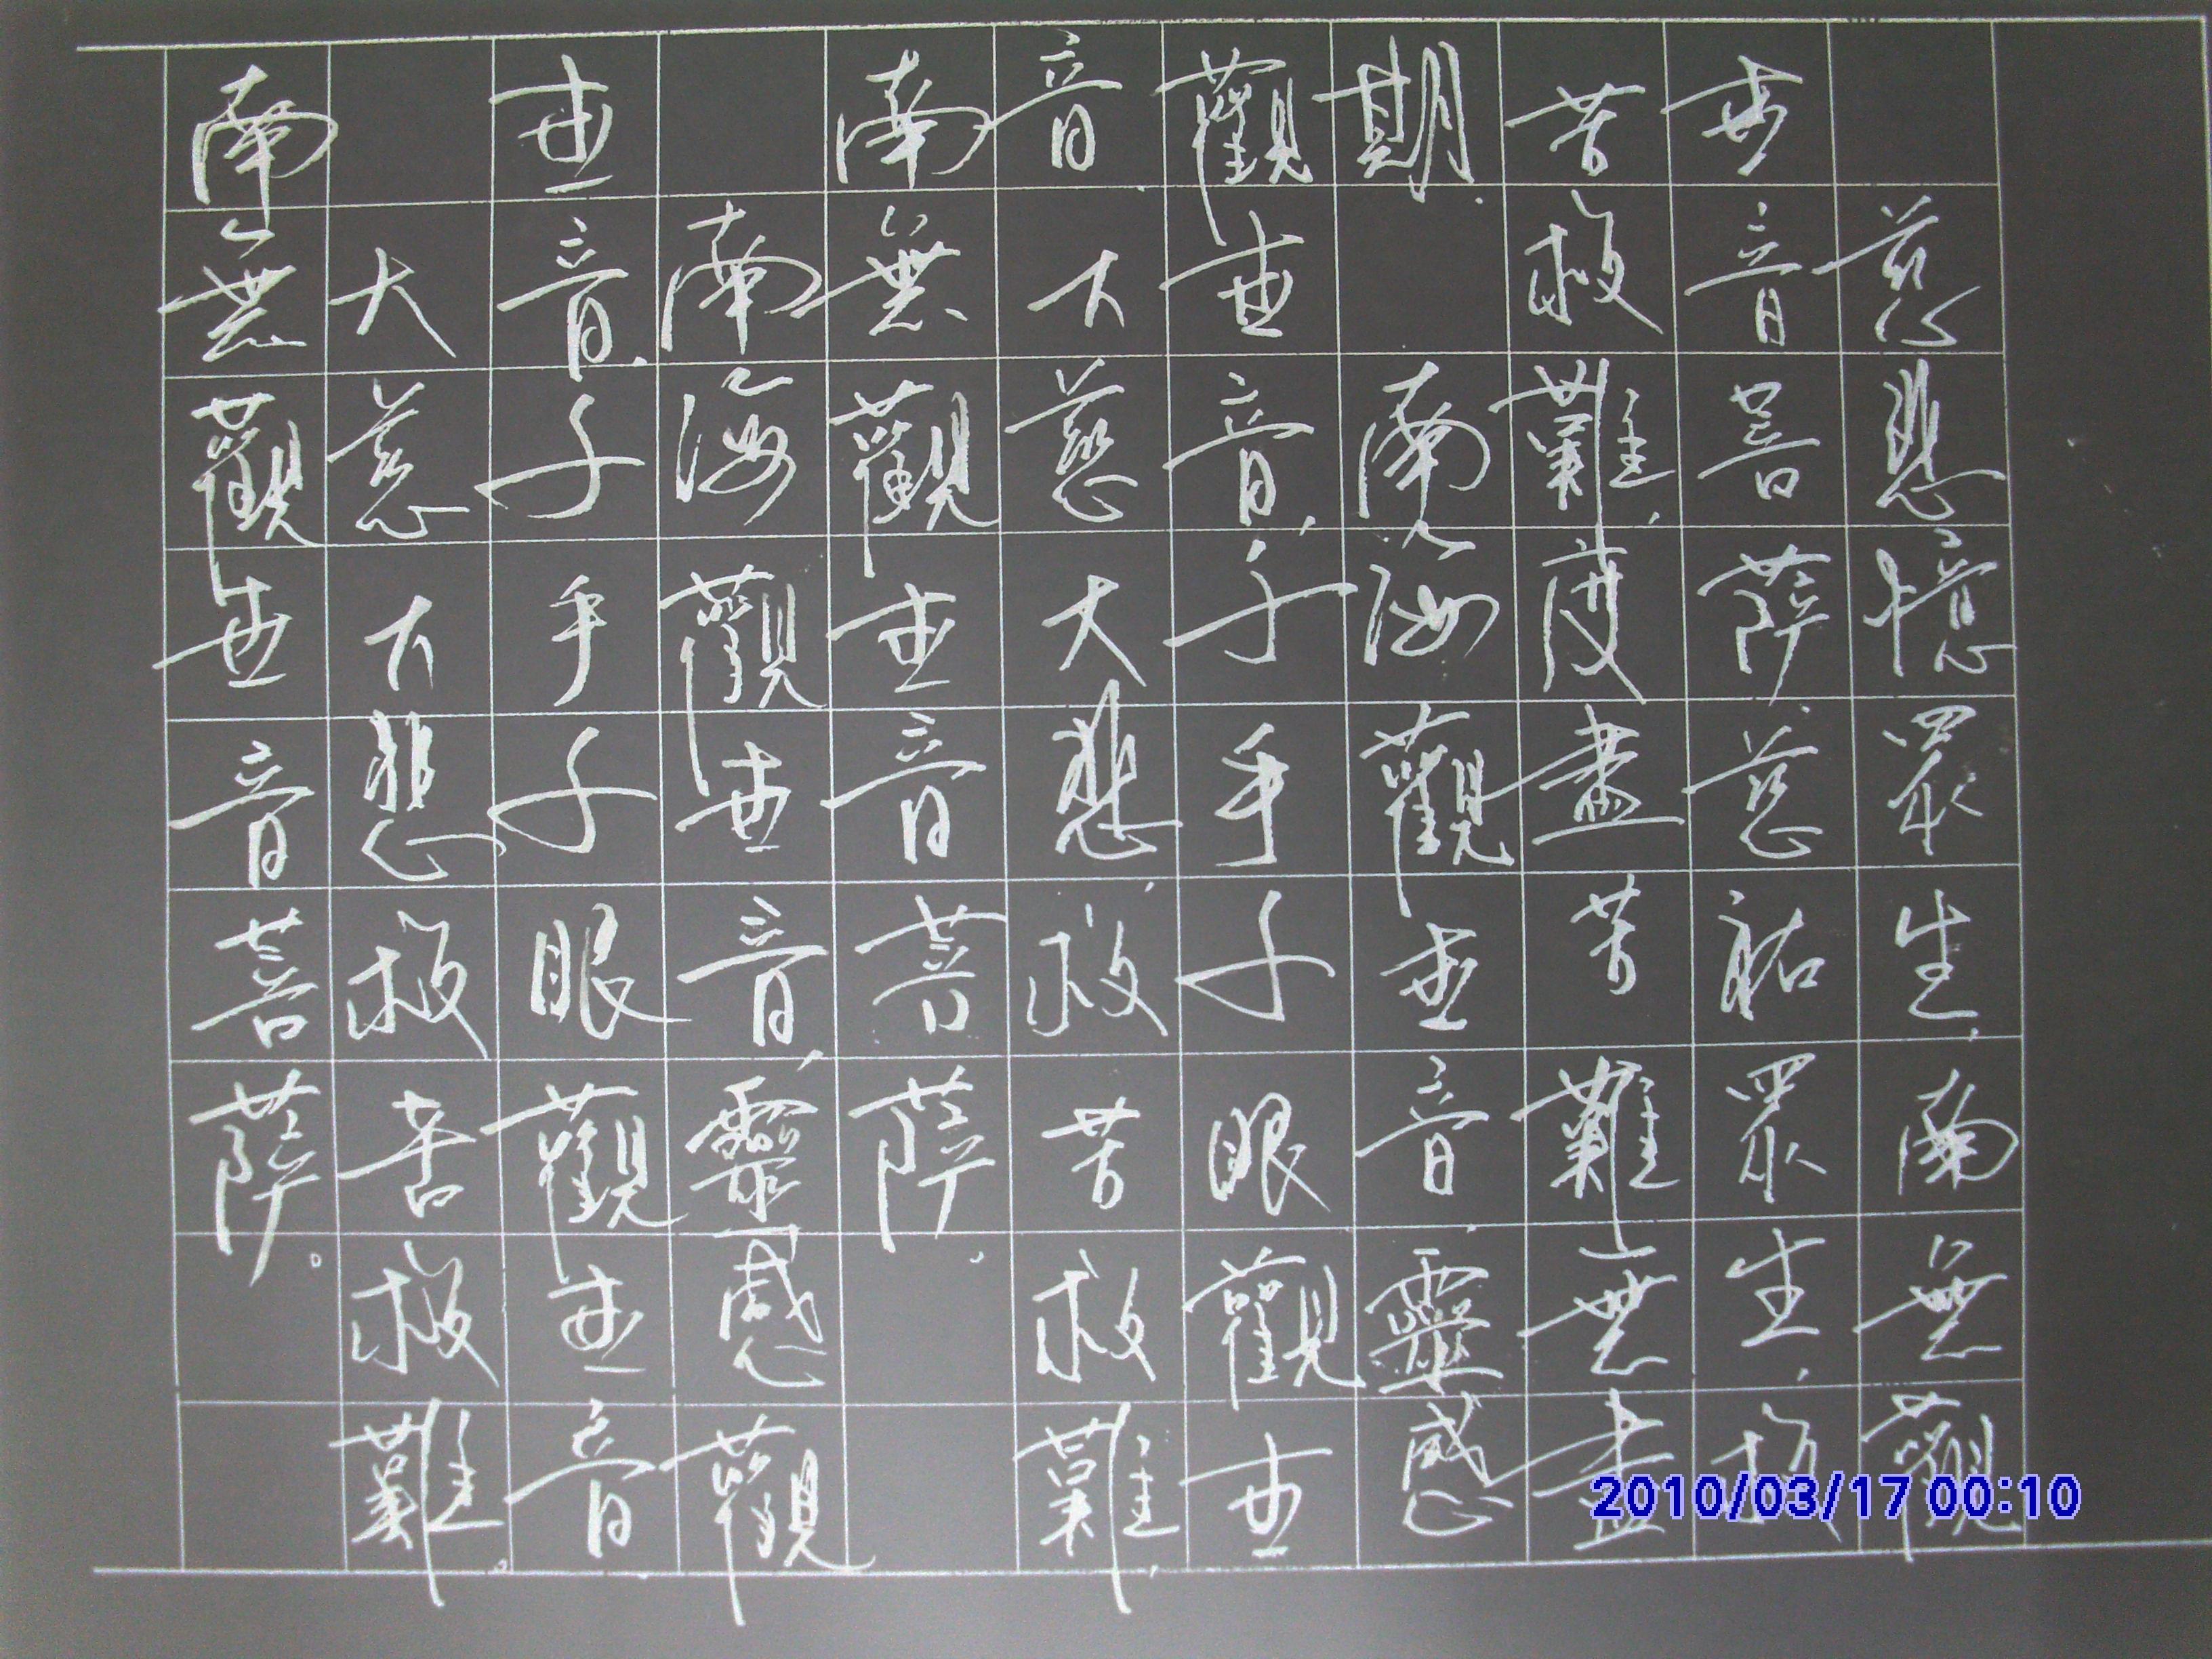 慈悲憶眾生，南無觀
世音菩薩慈祐眾生，救
苦救難，度盡苦難無盡
期。南海觀世音，靈感
觀世音，千手千眼觀世
音，大慈大悲，救苦救難，
南無觀世音菩薩。
南海觀世音，靈感觀
世音，千手千眼觀世音
大慈大悲救苦救難。
南無觀世音菩薩。
2010/03/17 00:10